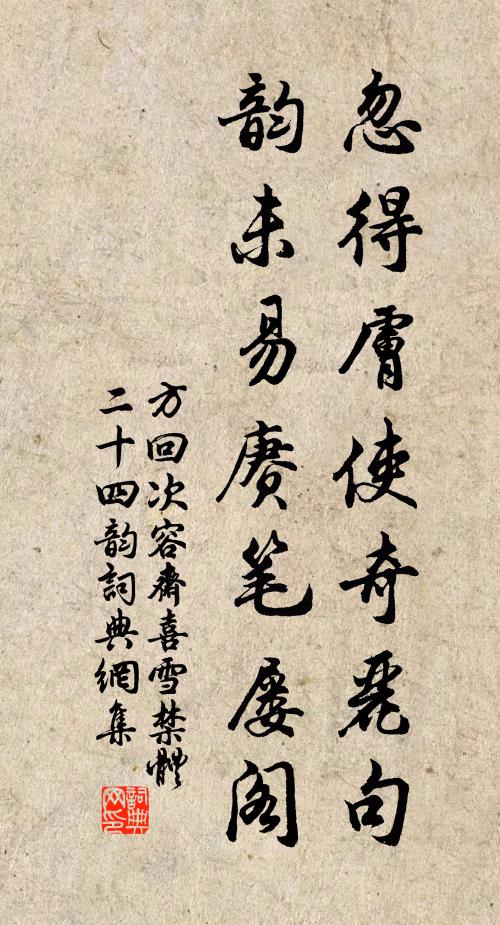 忽得膚使奇麗句
韵未易赓笔屡阁
方回次容齋喜雪禁體
二十四韵詞典網集
詞典
网印